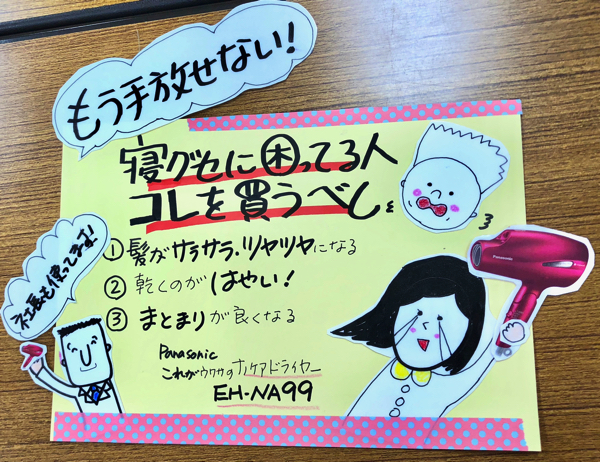 もう手放せない!
寝グセに困ってる人
コレを買うべし
① 髪がサラサラ・ツヤツヤになる
② 乾くのがはやい!
③ まとまりが良くなる
社長も使ってます!
Panasonic
これがウワサのナノケアドライヤー
EH-NA99
Panasonic